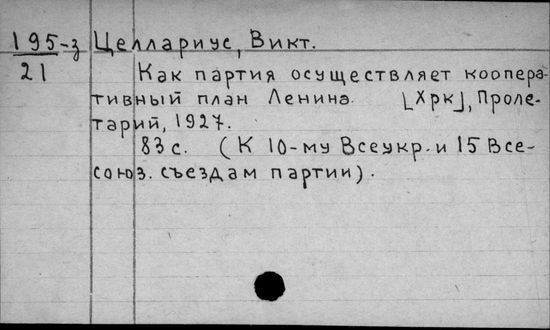 195-з Целлариус, Викт.
21 Как партия осуществляет коопера-
тивный план Ленина. [Хрк], Проле-
тарий, 1927.
83 с. (К 10-му Всеукр. и 15 Все-
союз. съездам партии).